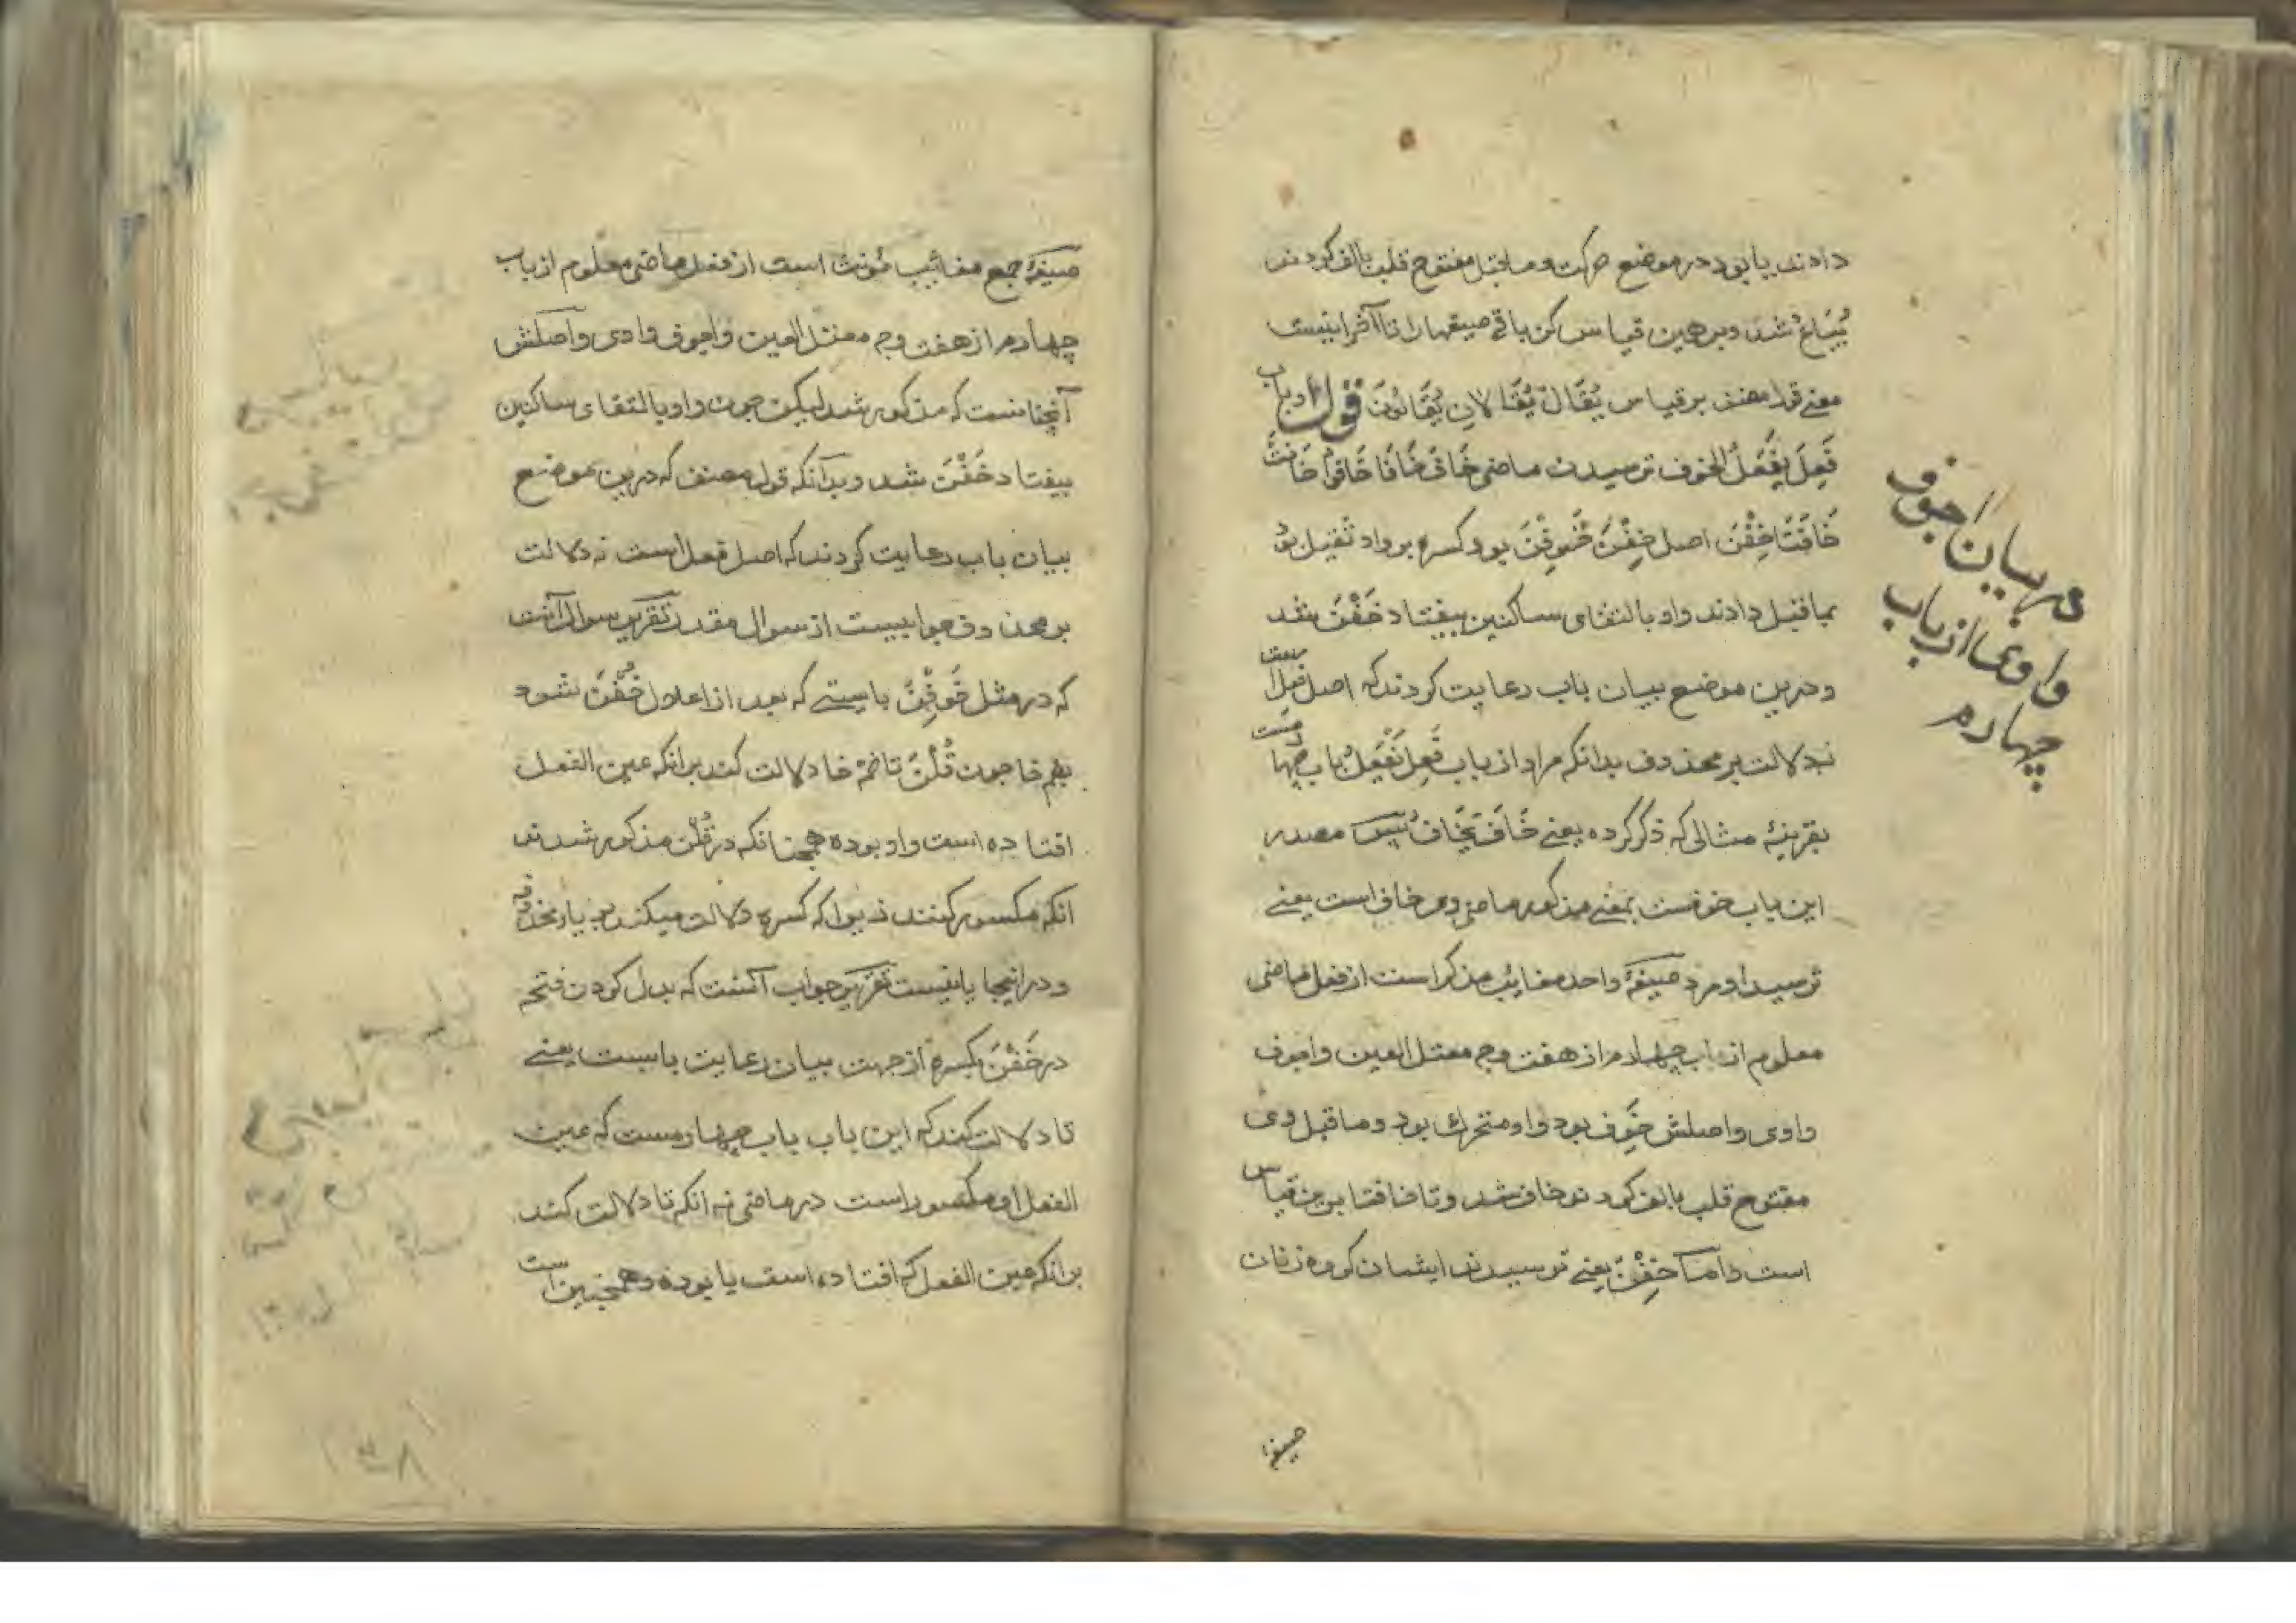 دادند یا بود در موضع حرکت و ماقبل مفتوح قلب بالف کردند
یُبَاعُ شد و برهمین قیاس کن باقی صیغهارا تا آخر اینست
معنی قول مصنف بر قیاس یُقَالُ یُقَالَانِ یُقَالُونَ قوله و باب
فَعِلَ یَفْعَلُ الخوف ترسیدن ماضی خَافَ خَافَا خَافُوا خَافَتْ
خَافَتَا خِفْنَ اصل خِفْنَ خَوِفْنَ بود کسره بر واو ثقیل بود
بماقبل دادند واو بالتقای ساکنین بیفتاد خِفْنَ شد
و درین موضع بیان باب رعایت کردند که اصل فعل است
نه دلالت بر محذوف بدانکه مراد از باب فَعِلَ یَفْعَلُ باب چهارمست
بقرینهٔ مثالی که ذکر کرده یعنی خَافَ یَخَافُ پس مصدر
این باب خوفست بمعنی مذکور ماضی وی خاف است یعنی
ترسید او مرد صیغهٔ واحد مغائب مذکر است از فعل ماضی
معلوم از باب چهارم از هفت وجه معتل العین و اجوف
واوی و اصلش خَوِفَ بود واو متحرک بود و ماقبل وی
مفتوح قلب بالف کردند خاف شد و تا خافتا برین قیاس
است و اما خِفْنَ یعنی ترسیدند ایشان گروه زنان
صیغهٔ
در بیان اجوف
واوی از باب
چهارم
صیغهٔ جمع مغائب مونث است از فعل ماضی معلوم از باب
چهارم از هفت وجه معتل العین و اجوف واوی و اصلش
آنچنانست که مذکور شد لیکن چون واو بالتقای ساکنین
بیفتاد خَفْنَ شد و بدانکه قول مصنف که درین موضع
بیان باب رعایت کردند که اصل فعل است نه دلالت
بر محذوف جوابیست از سوال مقدر تقریر سوال آنست
که در مثل خَوِفْنَ بایستی که بعد از اعلال خُفْنَ شود
بضم خا چون قُلْنَ تا ضمهٔ خا دلالت کند برانکه عین الفعل
افتاده است واو بوده همچنانکه در قُلْنَ مذکور شد نه
انکه مکسور کنند زیرا که کسره دلالت میکند بر یاء محذوفه
و در اینجا یا نیست تقریر جواب آنست که بدل کردن فتحه
در خَفْنَ بکسره از جهت بیان رعایت بابست یعنی
تا دلالت کند که این باب باب چهارمست که عین
الفعل او مکسور است در ماضی نه انکه تا دلالت کند
برانکه عین الفعل که افتاده است یا بوده و همچنین است